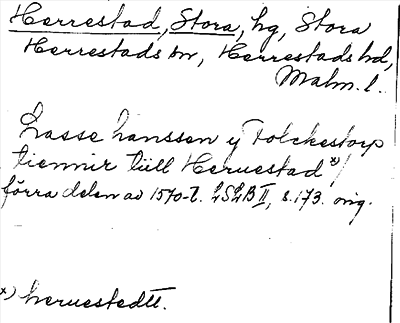 Herrestad, Stora, hg, Stora
Herrestads sn, Herrestads hd,
Malm. l.
Lasse hanssen y Folckestorp
tiennir tiill Heruestad x)
förra delen av 1570-t. LSLB II, s. 173. orig.
x) heruestedtt.